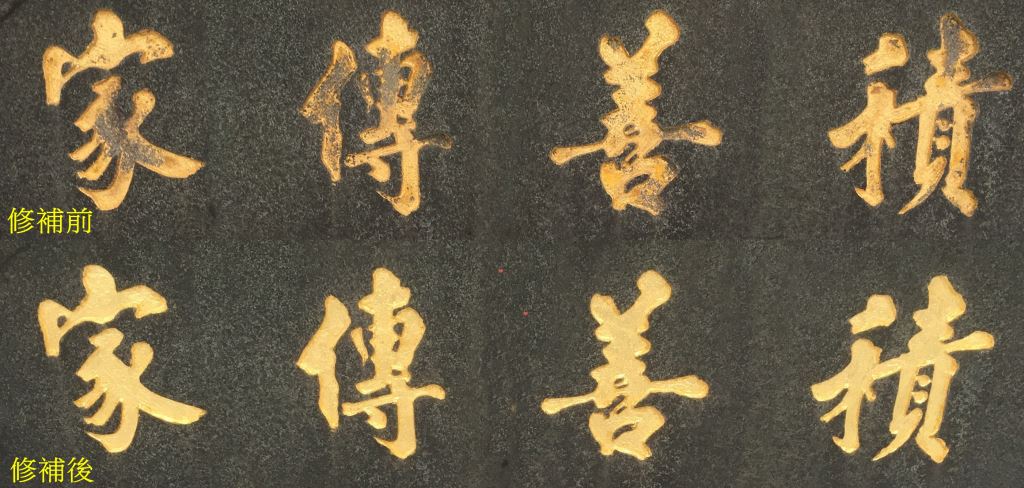 積善傳家
修補前
積善傳家
修補後